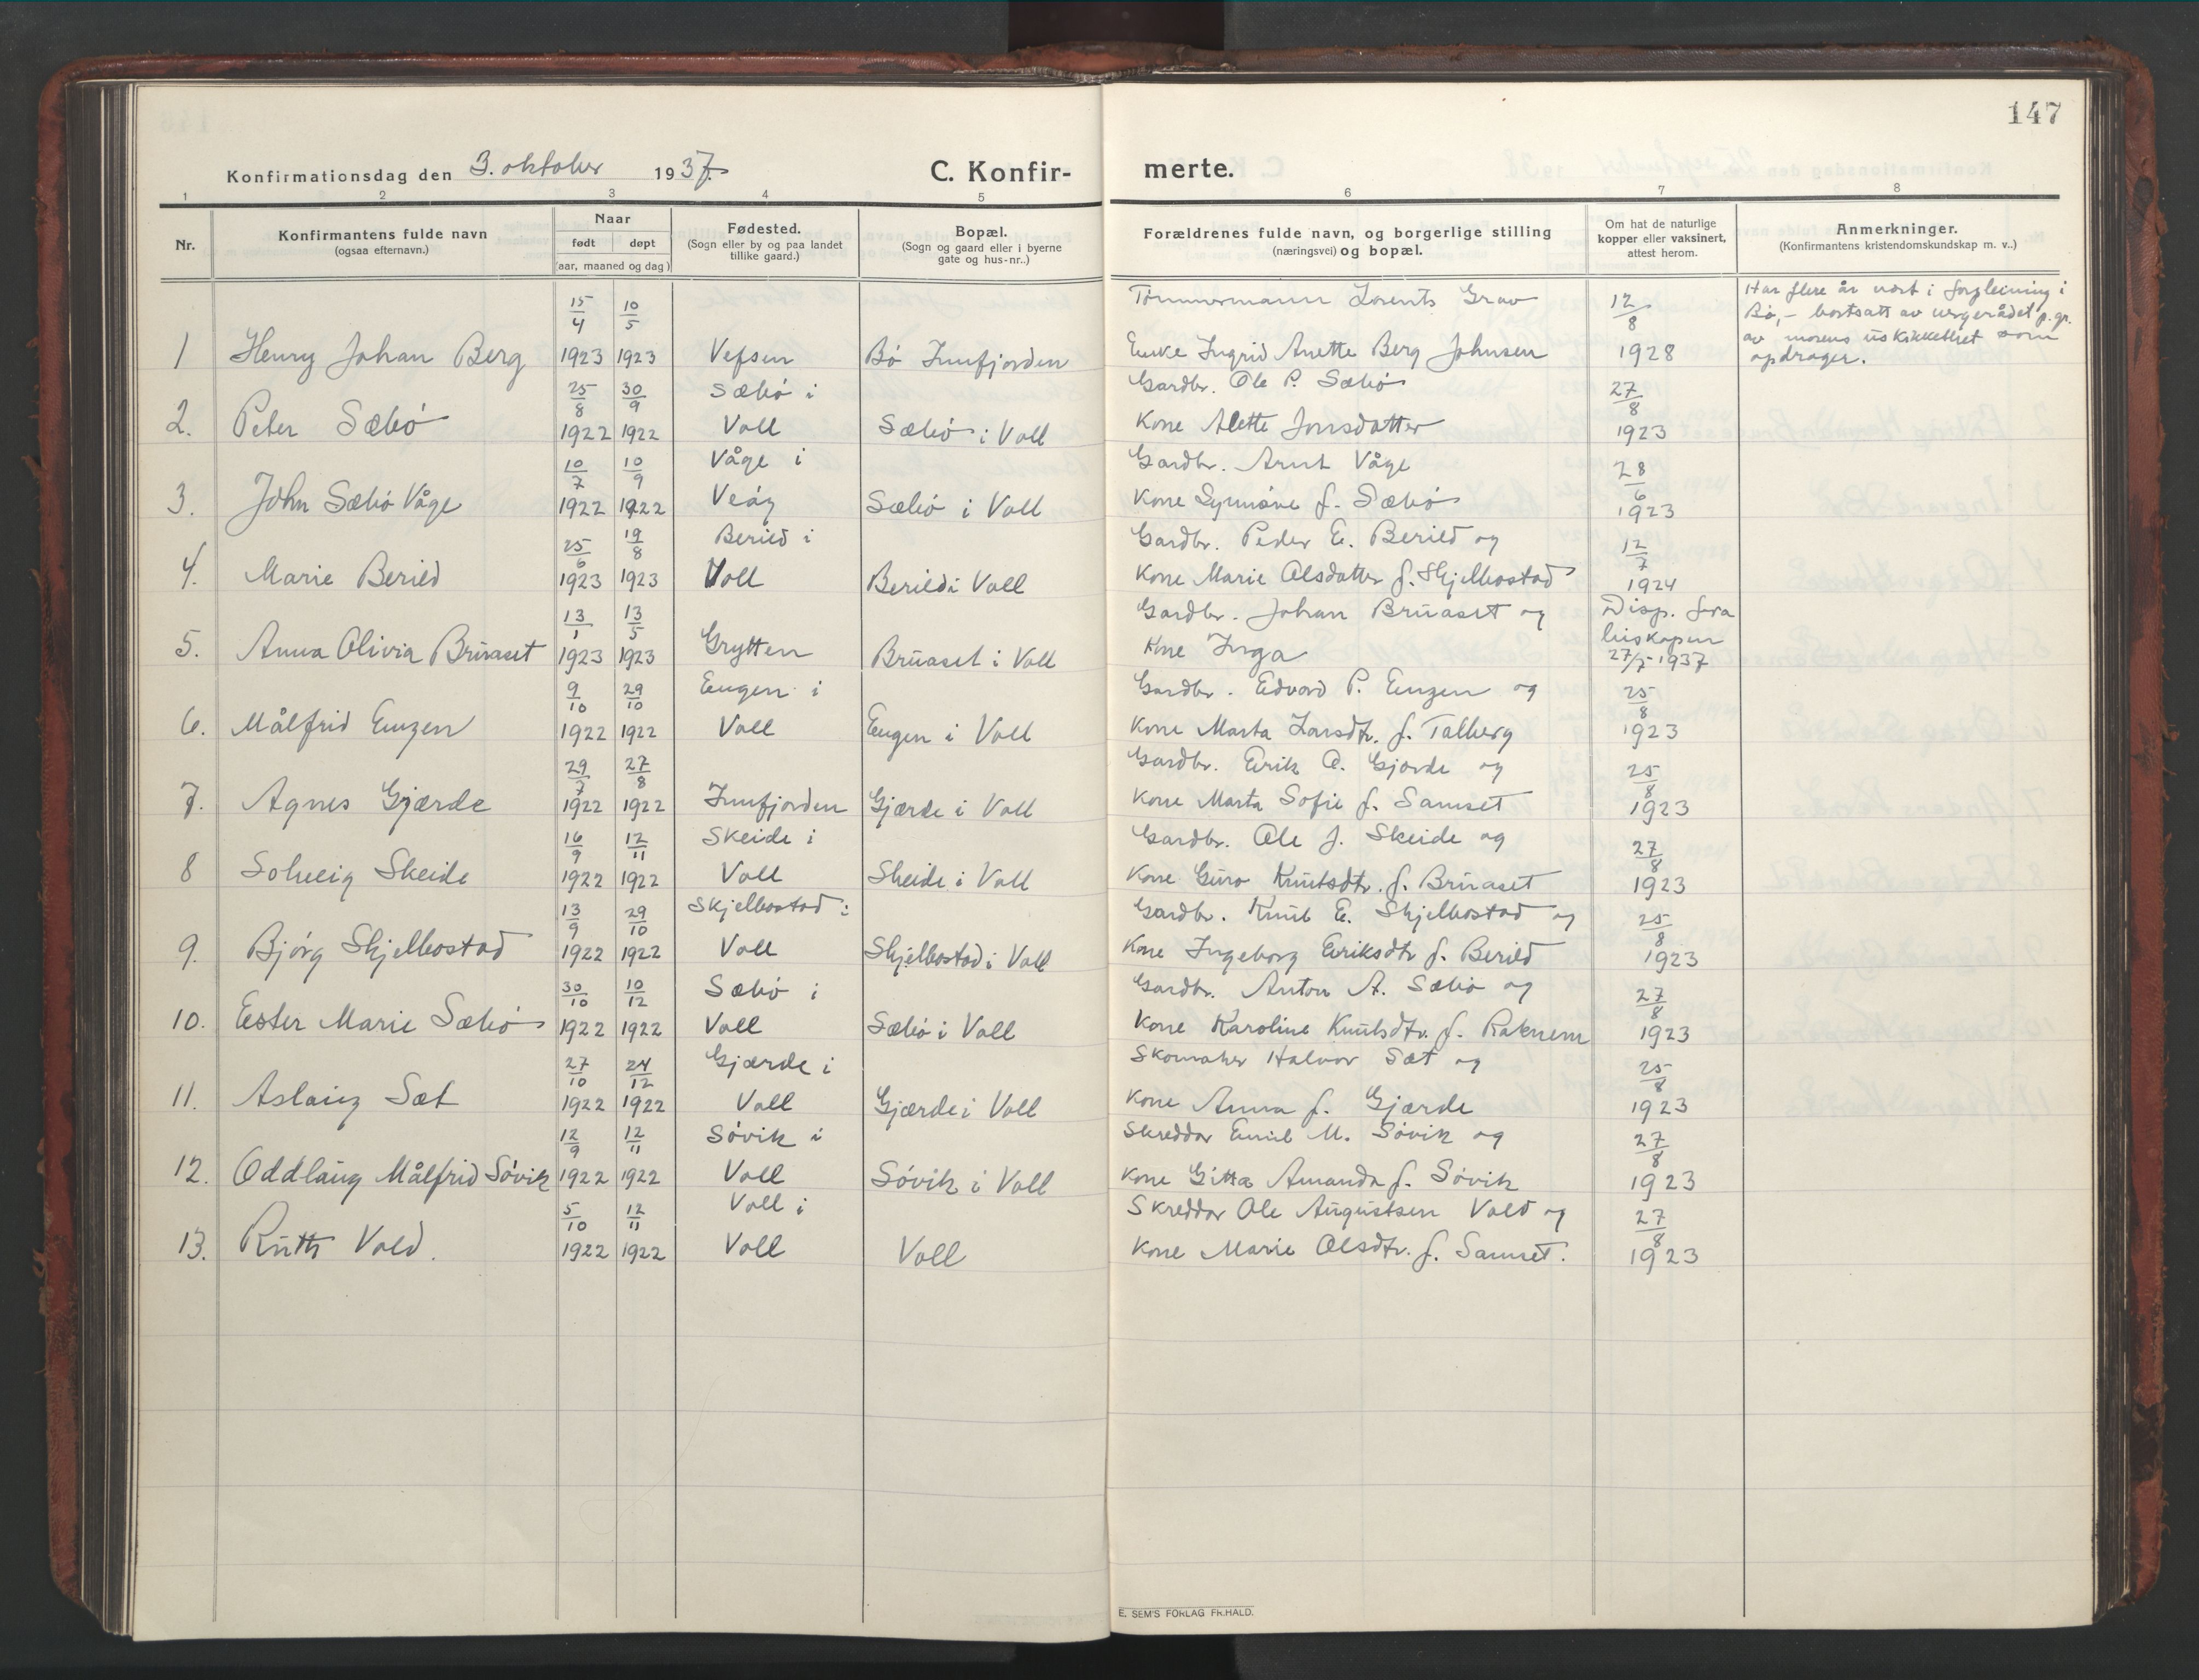 147
Konfirmationsdag den 3. oktober 1937.
C. Konfirmerte.
1 2 3 4 5 6 7 8
Nr.
Konfirmantens fulde navn
(ogsaa efternavn.)
Naar
født døpt
(aar, maaned og dag)
Fødested.
(Sogn eller by og paa landet
tillike gaard.)
Bopæl.
(Sogn og gaard eller i byerne
gate og hus-nr..)
Forældrenes fulde navn, og borgerlige stilling
(næringsvei) og bopæl.
Om hat de naturlige
kopper eller vaksinert,
attest herom.
Anmerkninger.
(Konfirmantens kristendomskundskap m. v..)
15/4 10/5 Tømmermann Lorents Grav 12/8
1 Henry Johan Berg 1923 1923 Vefsen Bø Innfjorden Enke Ingrid Anette Berg Johnsen 1928
Har flere år vært i forpleining i
Bø, - bortsatt av vergerådet p.gr.
av morens uskikkethet som
opdrager.
25/8 30/9 Sæbø i Gardbr. Ole P. Sæbø 27/8
2. Peter Sæbø 1922 1922 Voll Sæbø i Voll Kone Alette Jonsdatter 1923
10/7 10/9 Våge i Gardbr. Arnt Våge 28/6
3. John Sæbø Våge 1922 1922 Veøy Sæbø i Voll Kone Synnøve f. Sæbø 1923
25/6 19/8 Berild i Gardbr. Peder E. Berild og 12/7
4. Marie Berild 1923 1923 Voll Berild i Voll Kone Marie Olsdatter f. Skjelbostad 1924
13/1 13/5 Gardbr. Johan Bruaset og Disp. fra
5. Anna Olivia Bruaset 1923 1923 Grytten Bruaset i Voll Kone Inga biskopen
27/5 1937
9/10 29/10 Eugen i Gardbr. Edvard P. Eugen og 25/8
6. Målfrid Eugen 1922 1922 Voll Eugen i Voll Kone Marta Larsdtr. f. Talberg 1923
29/7 27/8 Gardbr. Eirik O. Gjørde og 25/8
7. Agnes Gjærde 1922 1922 Innfjorden Gjærde i Voll Kone Marta Sofie f. Samset 1923
16/9 12/11 Skeide i Gardbr. Ole J. Skeide og 27/8
8 Solveig Skeide 1922 1922 Voll Skeide i Voll Kone Guro Knutsdtr. f. Bruaset 1923
13/9 29/10 Skjelbostad i Gardbr. Knut E. Skjelbostad og 25/8
9. Bjørg Skjelbostad 1922 1922 Voll Skjelbostad i Voll Kone Ingeborg Eiriksdtr f. Berild 1923
30/10 10/12 Sæbø i Gardbr. Anton A. Sæbø og 27/8
10. Ester Marie Sæbø 1922 1922 Voll Sæbø i Voll Kone Karoline Knutsdtr. f. Raknem 1923
27/10 24/12 Gjærde i Skomaker Halvor Sæt og 25/8
11. Aslaug Sæt 1922 1922 Voll Gjærde i Voll Kone Anna f. Gjærde 1923
12/9 12/11 Søvik i Skreddar Emil M. Søvik og 27/8
12. Oddlaug Målfrid Søvik 1922 1922 Voll Søvik i Voll Kone Gitta Amanda f. Søvik 1923
5/10 12/11 Voll i Skreddar Ole Augustsen Vold og 27/8
13. Ruth Vold. 1922 1922 Voll Voll Kone Marie Olsdtr. f. Samset. 1923
E. SEM'S FORLAG FR.HALD.